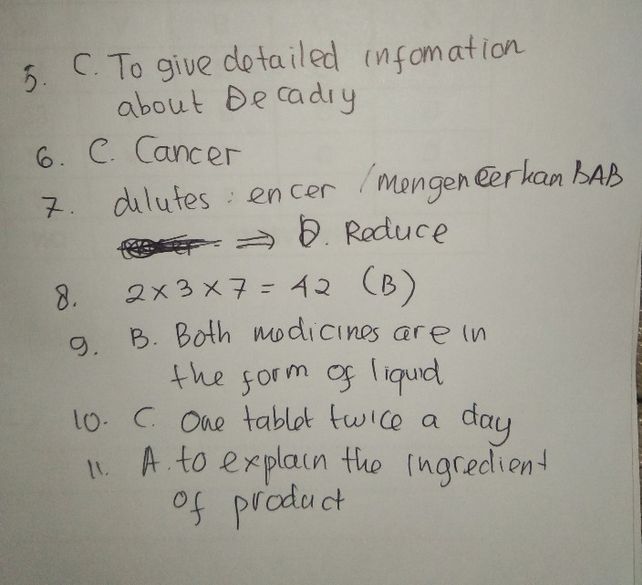 5. C. To give detailed infomation
about Decadry
6. C. Cancer
7. dilutes : encer / mengenCerkan BAB
⇒ D. Reduce
8. 2 x 3 x 7 = 42 (B)
9. B. Both medicines are in
the form of liquid
10. C. One tablet twice a day
11. A. to explain the ingredient
of product